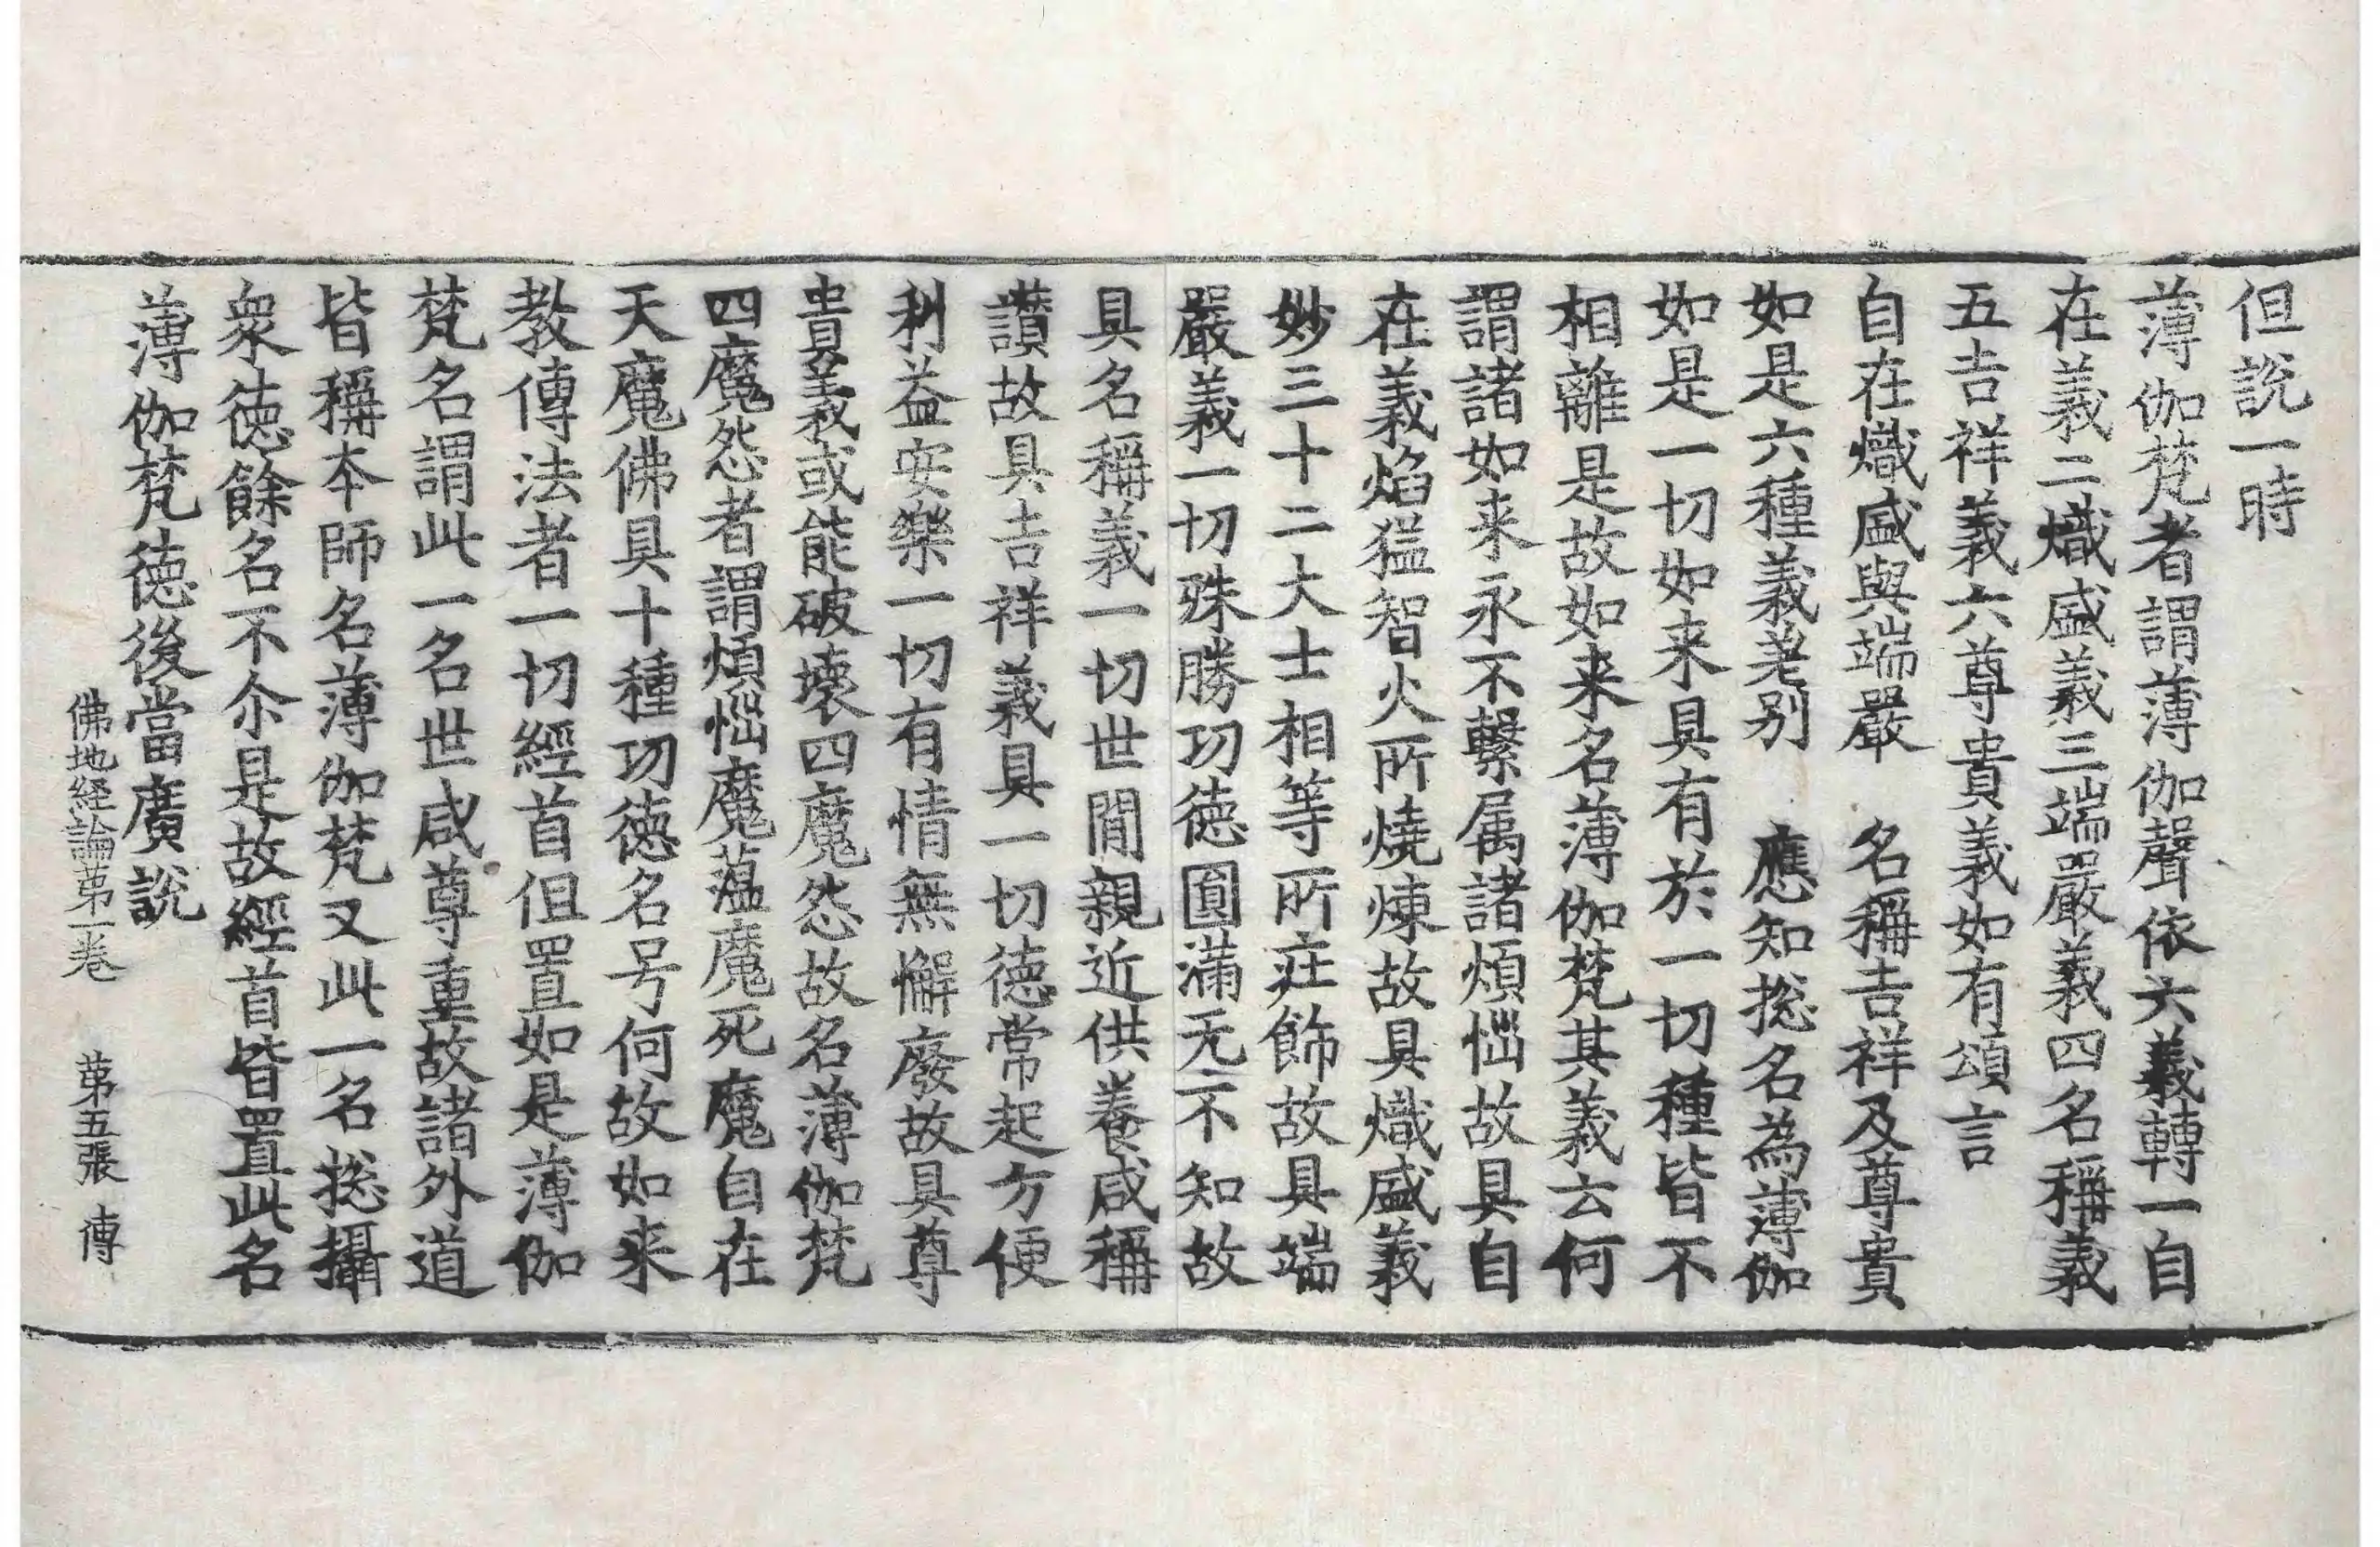 但說一時
薄伽梵者謂薄伽聲依六義轉一自
在義二熾盛義三端嚴義四名稱義
五吉祥義六尊貴義如有頌言
自在熾盛與端嚴　名稱吉祥及尊貴
如是六種義差別　應知捴名為薄伽
如是一切如来具有於一切種皆不
相離是故如来名薄伽梵其義云何
謂諸如来永不繫属諸煩惱故具自
在義焰猛智火所燒煉故具熾盛義
妙三十二大士相等所莊飾故具端
嚴義一切殊勝功德圓滿无不知故
具名稱義一切世間親近供養咸稱
讚故具吉祥義具一切德常起方便
利益安樂一切有情無懈廢故具尊
貴義或能破壞四魔怨故名薄伽梵
四魔怨者謂煩惱魔蘊魔死魔自在
天魔佛具十種功德名号何故如来
教傳法者一切經首但置如是薄伽
梵名謂此一名世咸尊重故諸外道
皆稱本師名薄伽梵又此一名捴攝
衆德餘名不尒是故經首皆置此名
薄伽梵德後當廣說
佛地経論苐一卷　苐五張　傳